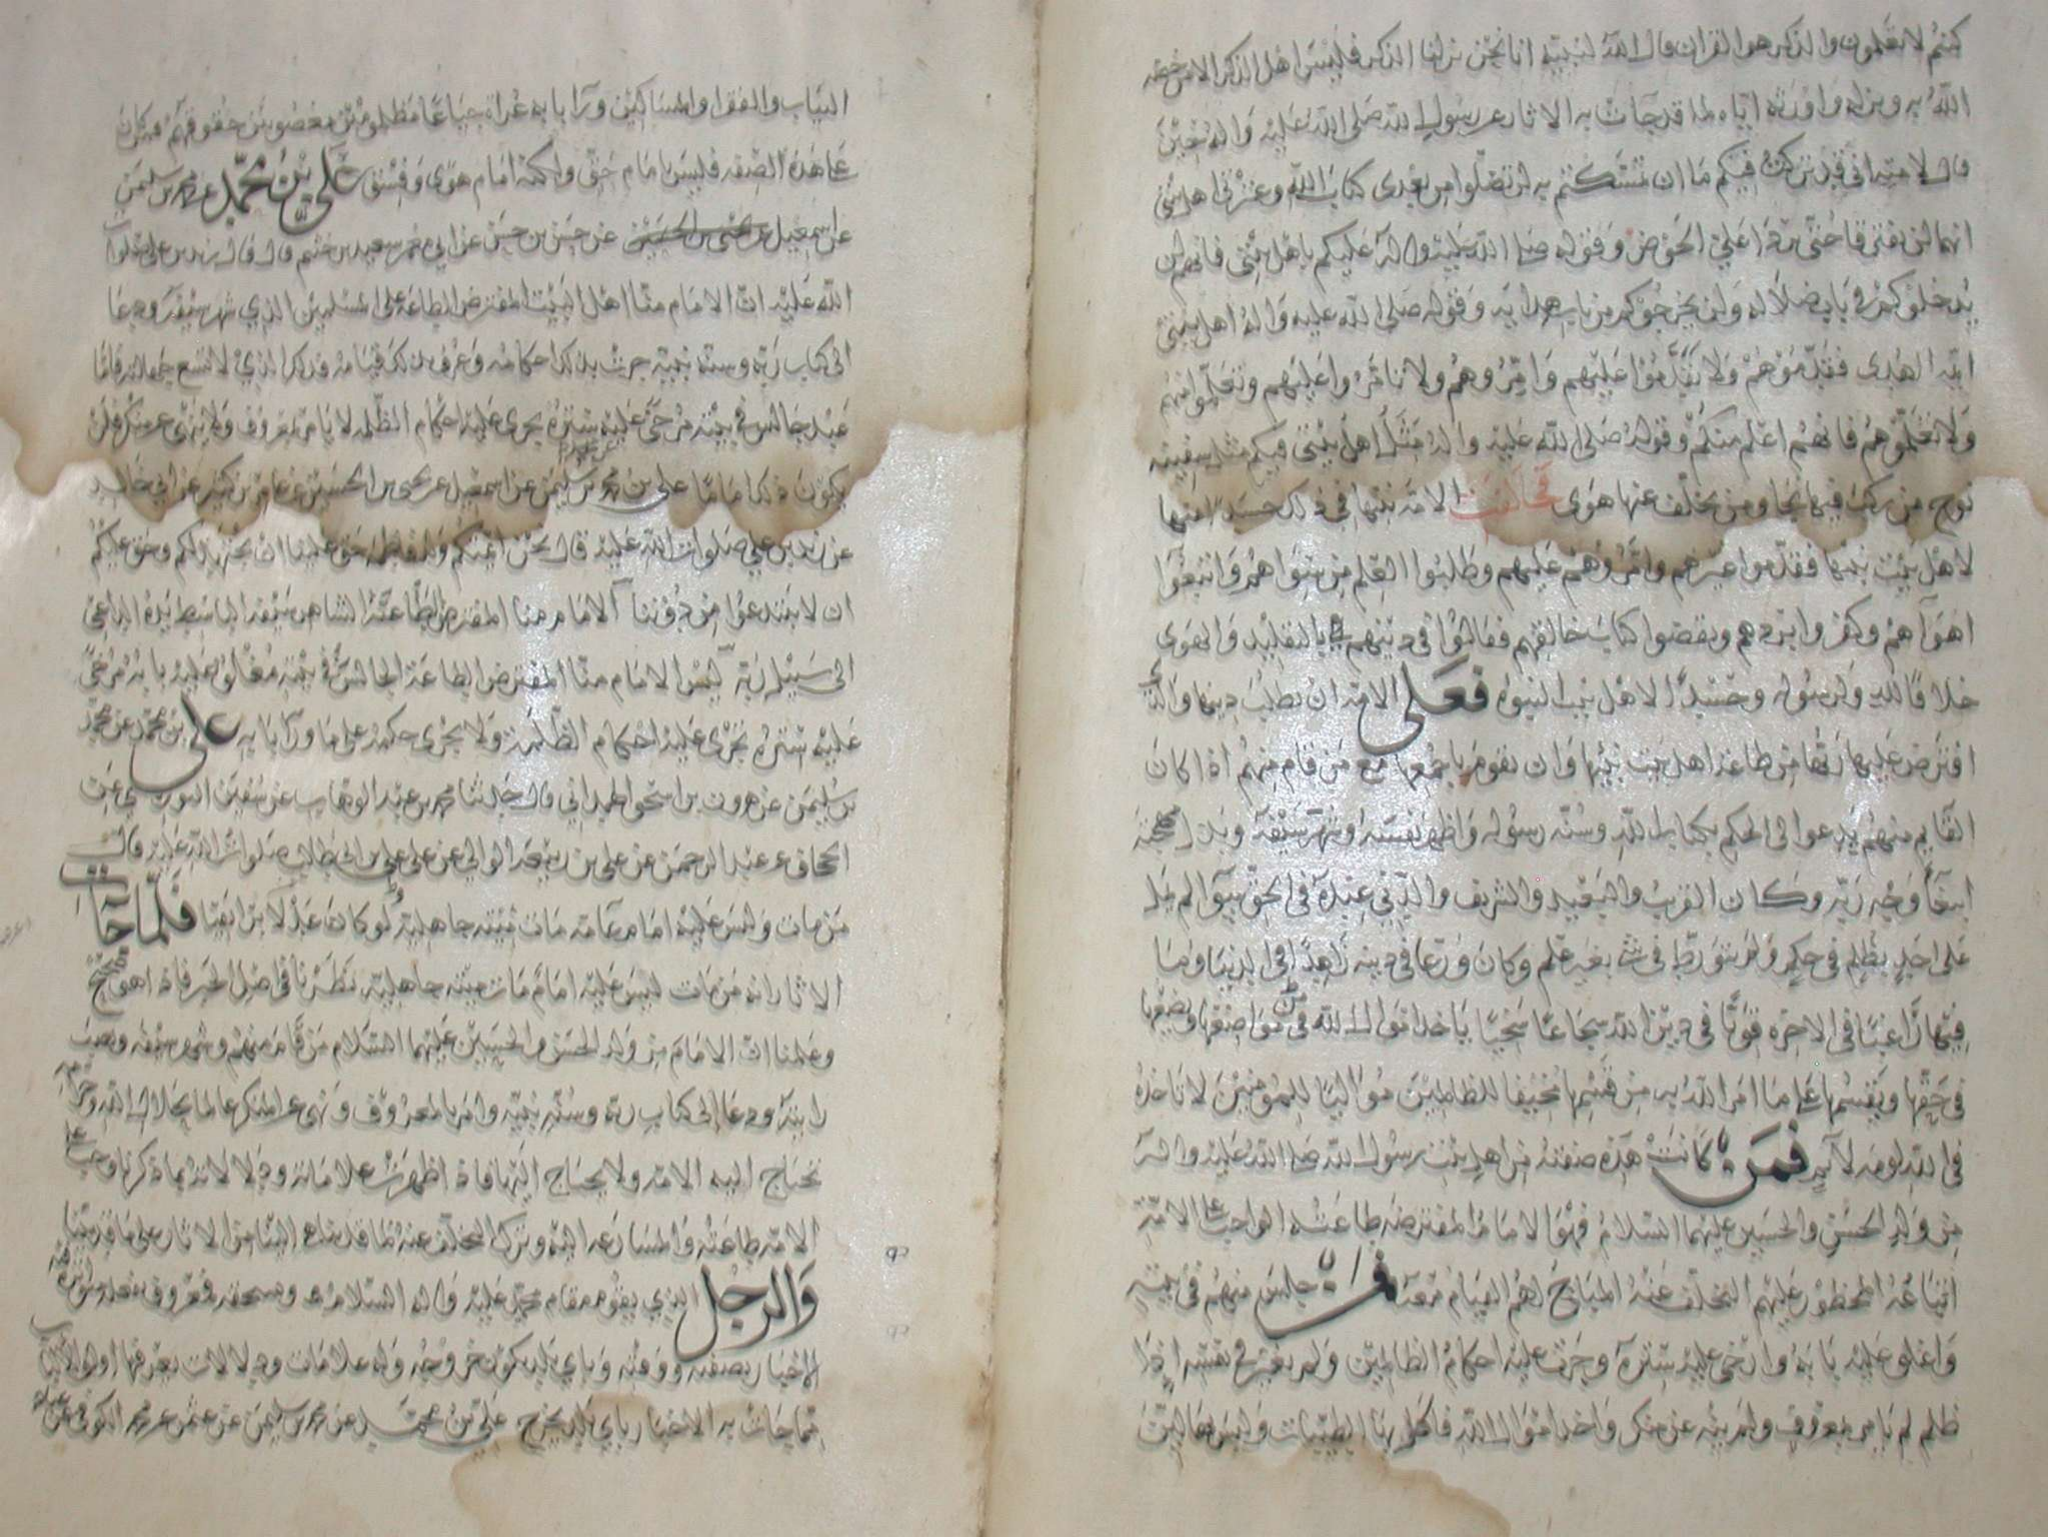 كنتم لا تعلمون والذكر هو القران قال الله لنبيه انا نحن نزلنا الذكر فليس اهل الذكر الا من خصه
الله به ونزله واورثه اياه لما قد جات به الاثار عن رسول الله صلى الله عليه واله حين
قال لامته اني قد تركت فيكم ما ان تمسكتم به لن تضلوا من بعدي كتاب الله وعترتي اهل بيتي
انهما لن يفترقا حتى يردا علي الحوض وقوله صلى الله عليه واله عليكم باهل بيتي فانهم لن
يدخلوكم في باب ضلاله ولن يخرجوكم من باب هدايه وقوله صلى الله عليه واله اهل بيتي
ايمه الهدى فقدموهم ولا تقدموا عليهم وامروهم ولا تامروا عليهم وتعلموا منهم
ولا تعلموهم فانهم اعلم منكم وقوله صلى الله عليه واله مثل اهل بيتي فيكم مثل سفينه
نوح من ركب فيها نجا ومن تخلف عنها هوى فخالفت الامه نبيها في ذلك حسدا منها
لاهل بيت نبيها فقدموا غيرهم وامروهم عليهم وطلبوا العلم من سواهم واتبعوا
اهواهم وكفروا بربهم ونقضوا كتاب خالقهم فقالوا في دينهم بالتقليد والهوى
خلافا لله ولرسوله وحسدا لاهل بيت النبوه فعلى الامه ان تطلب دينها والذي
افترض عليها ربها من طاعه اهل بيت نبيها وان تقوم باجمعها مع من قام منهم اذا كان
القايم منهم يدعوا الى الحكم بكتاب الله وسنه رسوله واظهر نفسه وشهر سيفه وبذل مهجته
ابتغا وجه ربه وكان القريب والبعيد والشريف والدني عنده في الحق سوا لم يمل
على احد بظلم في حكم ولم يتورط في شي بغير علم وكان ورعا في دينه زاهدا في الدنيا وما
فيها راغبا في الاخره قويا في دين الله شجاعا سخيا ياخذ اموال الله من مواضعها ويضعها
في حقها ويقسمها على ما امر الله به من قسمها مخيفا للظالمين مواليا للمومنين لا تاخذه
في الله لومه لايم فمن كانت هذه صفته من اهل بيت رسول الله صلى الله عليه واله
من ولد الحسن والحسين عليهما السلام فهو الامام المفترضه طاعته الواجب على الامه
اتباعه المحظور عليهم التخلف عنه المباح لهم القيام معه ومن جلس منهم في بيته
واغلق عليه بابه وارخى عليه ستره وجرت عليه احكام الظالمين ولم يغير في نفسه اذا
ظلم لم يامر بمعروف ولم ينه عن منكر واخذ اموال الله فاكل بها الطيبات ولبس بها لين
الثياب والفقرا والمساكين ورا بابه عراه جياعا مظلومين مغصوبين حقوقهم فمن كان
على هذه الصفه فليس امام حق ولكنه امام هوى وفسق علي بن محمد عن محمد بن سليمن
عن اسمعيل عن حسن بن حسين عن ابي معمر سعيد بن خثيم قال قال زيد بن علي صلوات
الله عليه ان الامام منا اهل البيت المفترض الطاعه على المسلمين الذي شهر سيفه ودعا
الى كتاب ربه وسنه نبيه جرت بذلك احكامه وعرف بذلك قيامه فذلك الذي لا تسع جهالته فاما
عبد جالس في بيته مرخى عليه ستره يجري عليه احكام الظلمه لا يامر بمعروف ولا ينهى عن منكر فلن
يكون ذلك اماما علي بن محمد بن سليمن عن اسمعيل عن يحيى بن الحسين عن عامر بن كثير عن ابي خالد
عن زيد بن علي صلوات الله عليه قال نحن ايمتكم حق علينا ان نجتهد لكم وحق عليكم
ان لا تبتدعوا من دوننا الامام منا المفترض الطاعه الشاهر سيفه الباسط يده الداعي
الى سبيل ربه ليس الامام منا المفترض الطاعه الجالس في بيته مغلق عليه بابه مرخى
عليه ستره تجري عليه احكام الظلمه ولا يجري حكمه على ما ورا بابه علي بن محمد عن محمد
بن سليمن عن هرون بن اسحق الهمداني قال حدثنا محمد بن عبد الوهاب عن سفين الثوري عن
عبد الرحمن عن علي بن ربيعه الوالبي عن علي بن ابي طالب صلوات الله عليه قال
من مات وليس عليه امام عامه مات ميته جاهليه لو كان عبدا برا تقيا فلما جات
الاثار انه من مات ليس عليه امام مات ميته جاهليه نظرنا في اصل الخبر فاذا هو صحيح
وعلمنا ان الامام من ولد الحسن والحسين عليهما السلام من قام منهم وشهر سيفه ونصب
رايته ودعا الى كتاب ربه وسنه نبيه وامر بالمعروف ونهى عن المنكر عالما بحلال الله وحرامه
تحتاج اليه الامه ولا يحتاج اليها فاذا ظهرت علاماته ودلالاته بما ذكرنا وجب على
الامه طاعته والمسارعه اليه وترك التخلف عنه لما قد تناها الينا من الاثار على ما قد بينا
والرجل الذي يقوم مقام محمد عليه واله السلام معروف
الاخبار بصفته ووقته وباي بلد يكون خروجه وله علامات ودلالات يعرفها
مما جات به الاخبار باي بلد يخرج علي بن محمد عن محمد بن سليمن عن عثمن عن محمد الكوفي عن